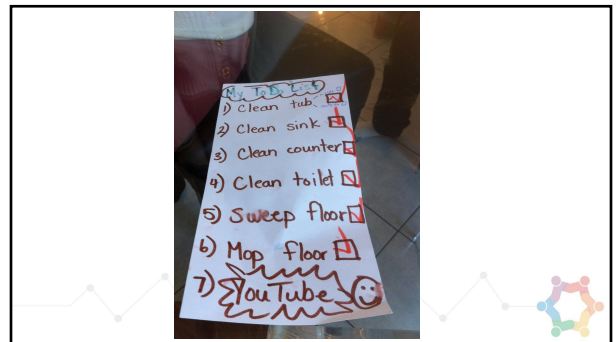 My To Do List
1) Clean tub
2) Clean sink
3) Clean counter
4) Clean toilet
5) Sweep floor
6) Mop floor
7) YouTube